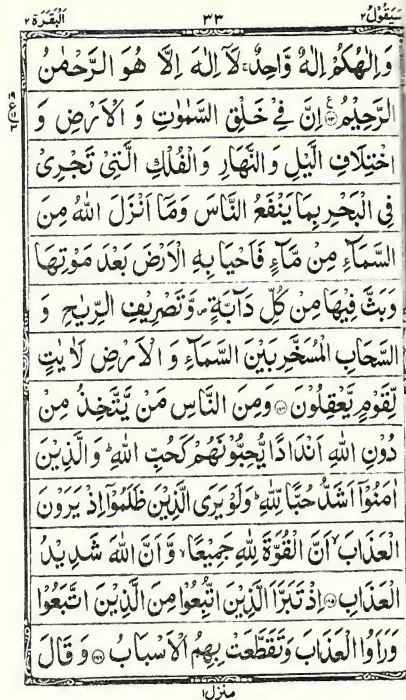 سَيَقُوْلُ ٢ ٣٣ اَلْبَقَرَة ٢
وَاِلٰهُكُمْ اِلٰهٌ وَّاحِدٌ ۚ لَاۤ اِلٰهَ اِلَّا هُوَ الرَّحْمٰنُ
الرَّحِيْمُ ۝١٦٣ اِنَّ فِيْ خَلْقِ السَّمٰوٰتِ وَ الْاَرْضِ وَ
اخْتِلَافِ الَّيْلِ وَالنَّهَارِ وَالْفُلْكِ الَّتِيْ تَجْرِيْ
فِي الْبَحْرِ بِمَا يَنْفَعُ النَّاسَ وَمَاۤ اَنْزَلَ اللّٰهُ مِنَ
السَّمَآءِ مِنْ مَّآءٍ فَاَحْيَا بِهِ الْاَرْضَ بَعْدَ مَوْتِهَا
وَبَثَّ فِيْهَا مِنْ كُلِّ دَآبَّةٍ ۪ وَّتَصْرِيْفِ الرِّيٰحِ وَ
السَّحَابِ الْمُسَخَّرِ بَيْنَ السَّمَآءِ وَ الْاَرْضِ لَاٰيٰتٍ
لِّقَوْمٍ يَّعْقِلُوْنَ ۝١٦٤ وَمِنَ النَّاسِ مَنْ يَّتَّخِذُ مِنْ
دُوْنِ اللّٰهِ اَنْدَادًا يُّحِبُّوْنَهُمْ كَحُبِّ اللّٰهِ ؕ وَالَّذِيْنَ
اٰمَنُوْۤا اَشَدُّ حُبًّا لِّلّٰهِ ؕ وَلَوْ يَرَى الَّذِيْنَ ظَلَمُوْۤا اِذْ يَرَوْنَ
الْعَذَابَ ۙ اَنَّ الْقُوَّةَ لِلّٰهِ جَمِيْعًا ۙ وَّاَنَّ اللّٰهَ شَدِيْدُ
الْعَذَابِ ۝١٦٥ اِذْ تَبَرَّاَ الَّذِيْنَ اتُّبِعُوْا مِنَ الَّذِيْنَ اتَّبَعُوْا
وَرَاَوُا الْعَذَابَ وَتَقَطَّعَتْ بِهِمُ الْاَسْبَابُ ۝١٦٦ وَقَالَ
منزل ١